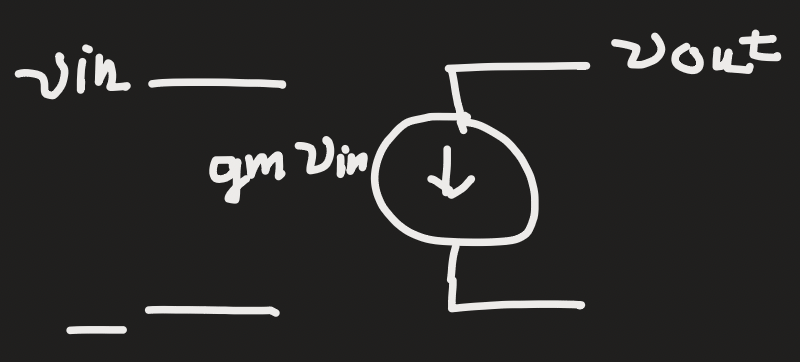 vin
vout
gm vin